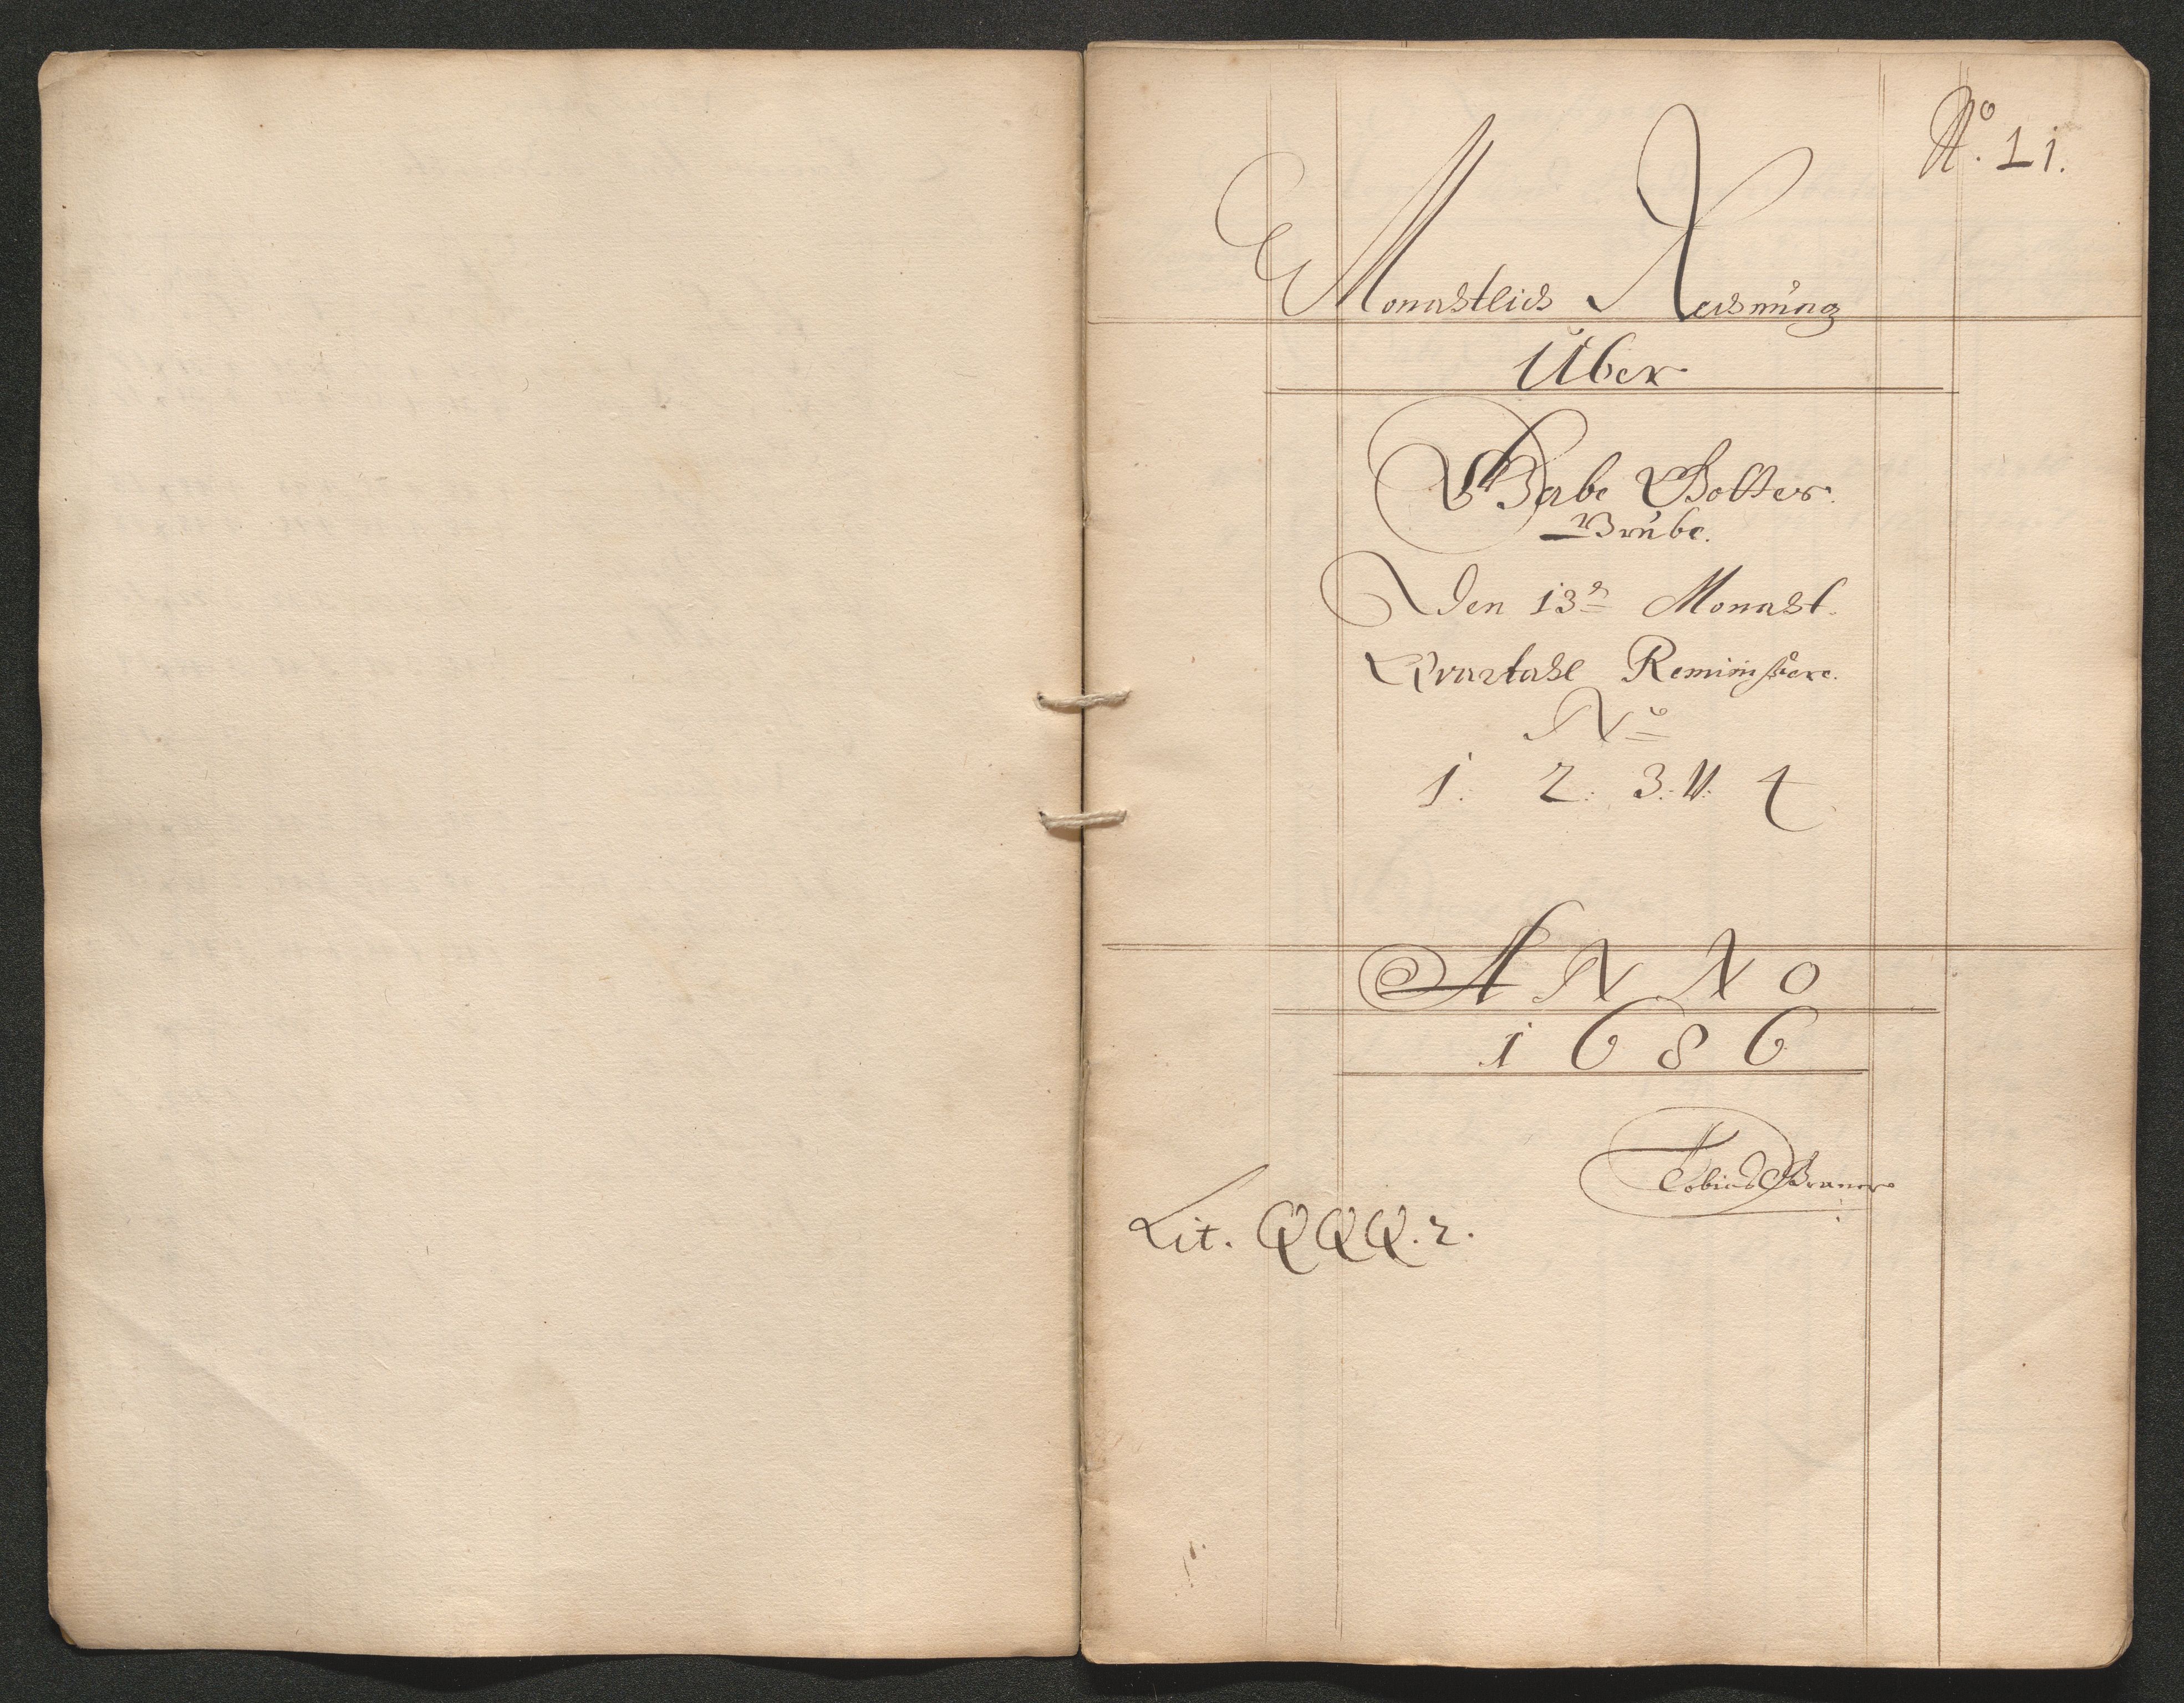 No. 11.
Monahtlich Rechnung
Über
Gabe Gottes
Grube.
Den 13n Monaht
Qvartahl Reminiscere.
No
1. 2. 3. U. 4
ANNO
1686
Tobias
Lit. QQQ. 2.